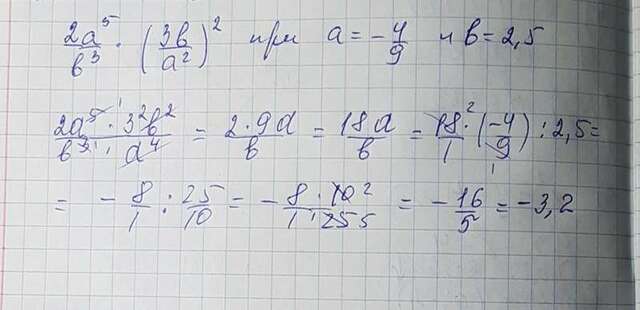 2a⁵/в³ · (3в/a²)² при a = -4/9 и в = 2,5
2a⁵ · 3²в²/в³ · a⁴ = 2 · 9a/в = 18a/в = 18/1 · (-4/9) : 2,5 =
= - 8/1 : 25/10 = - 8 · 10 2/1 · 25 5 = - 16/5 = -3,2